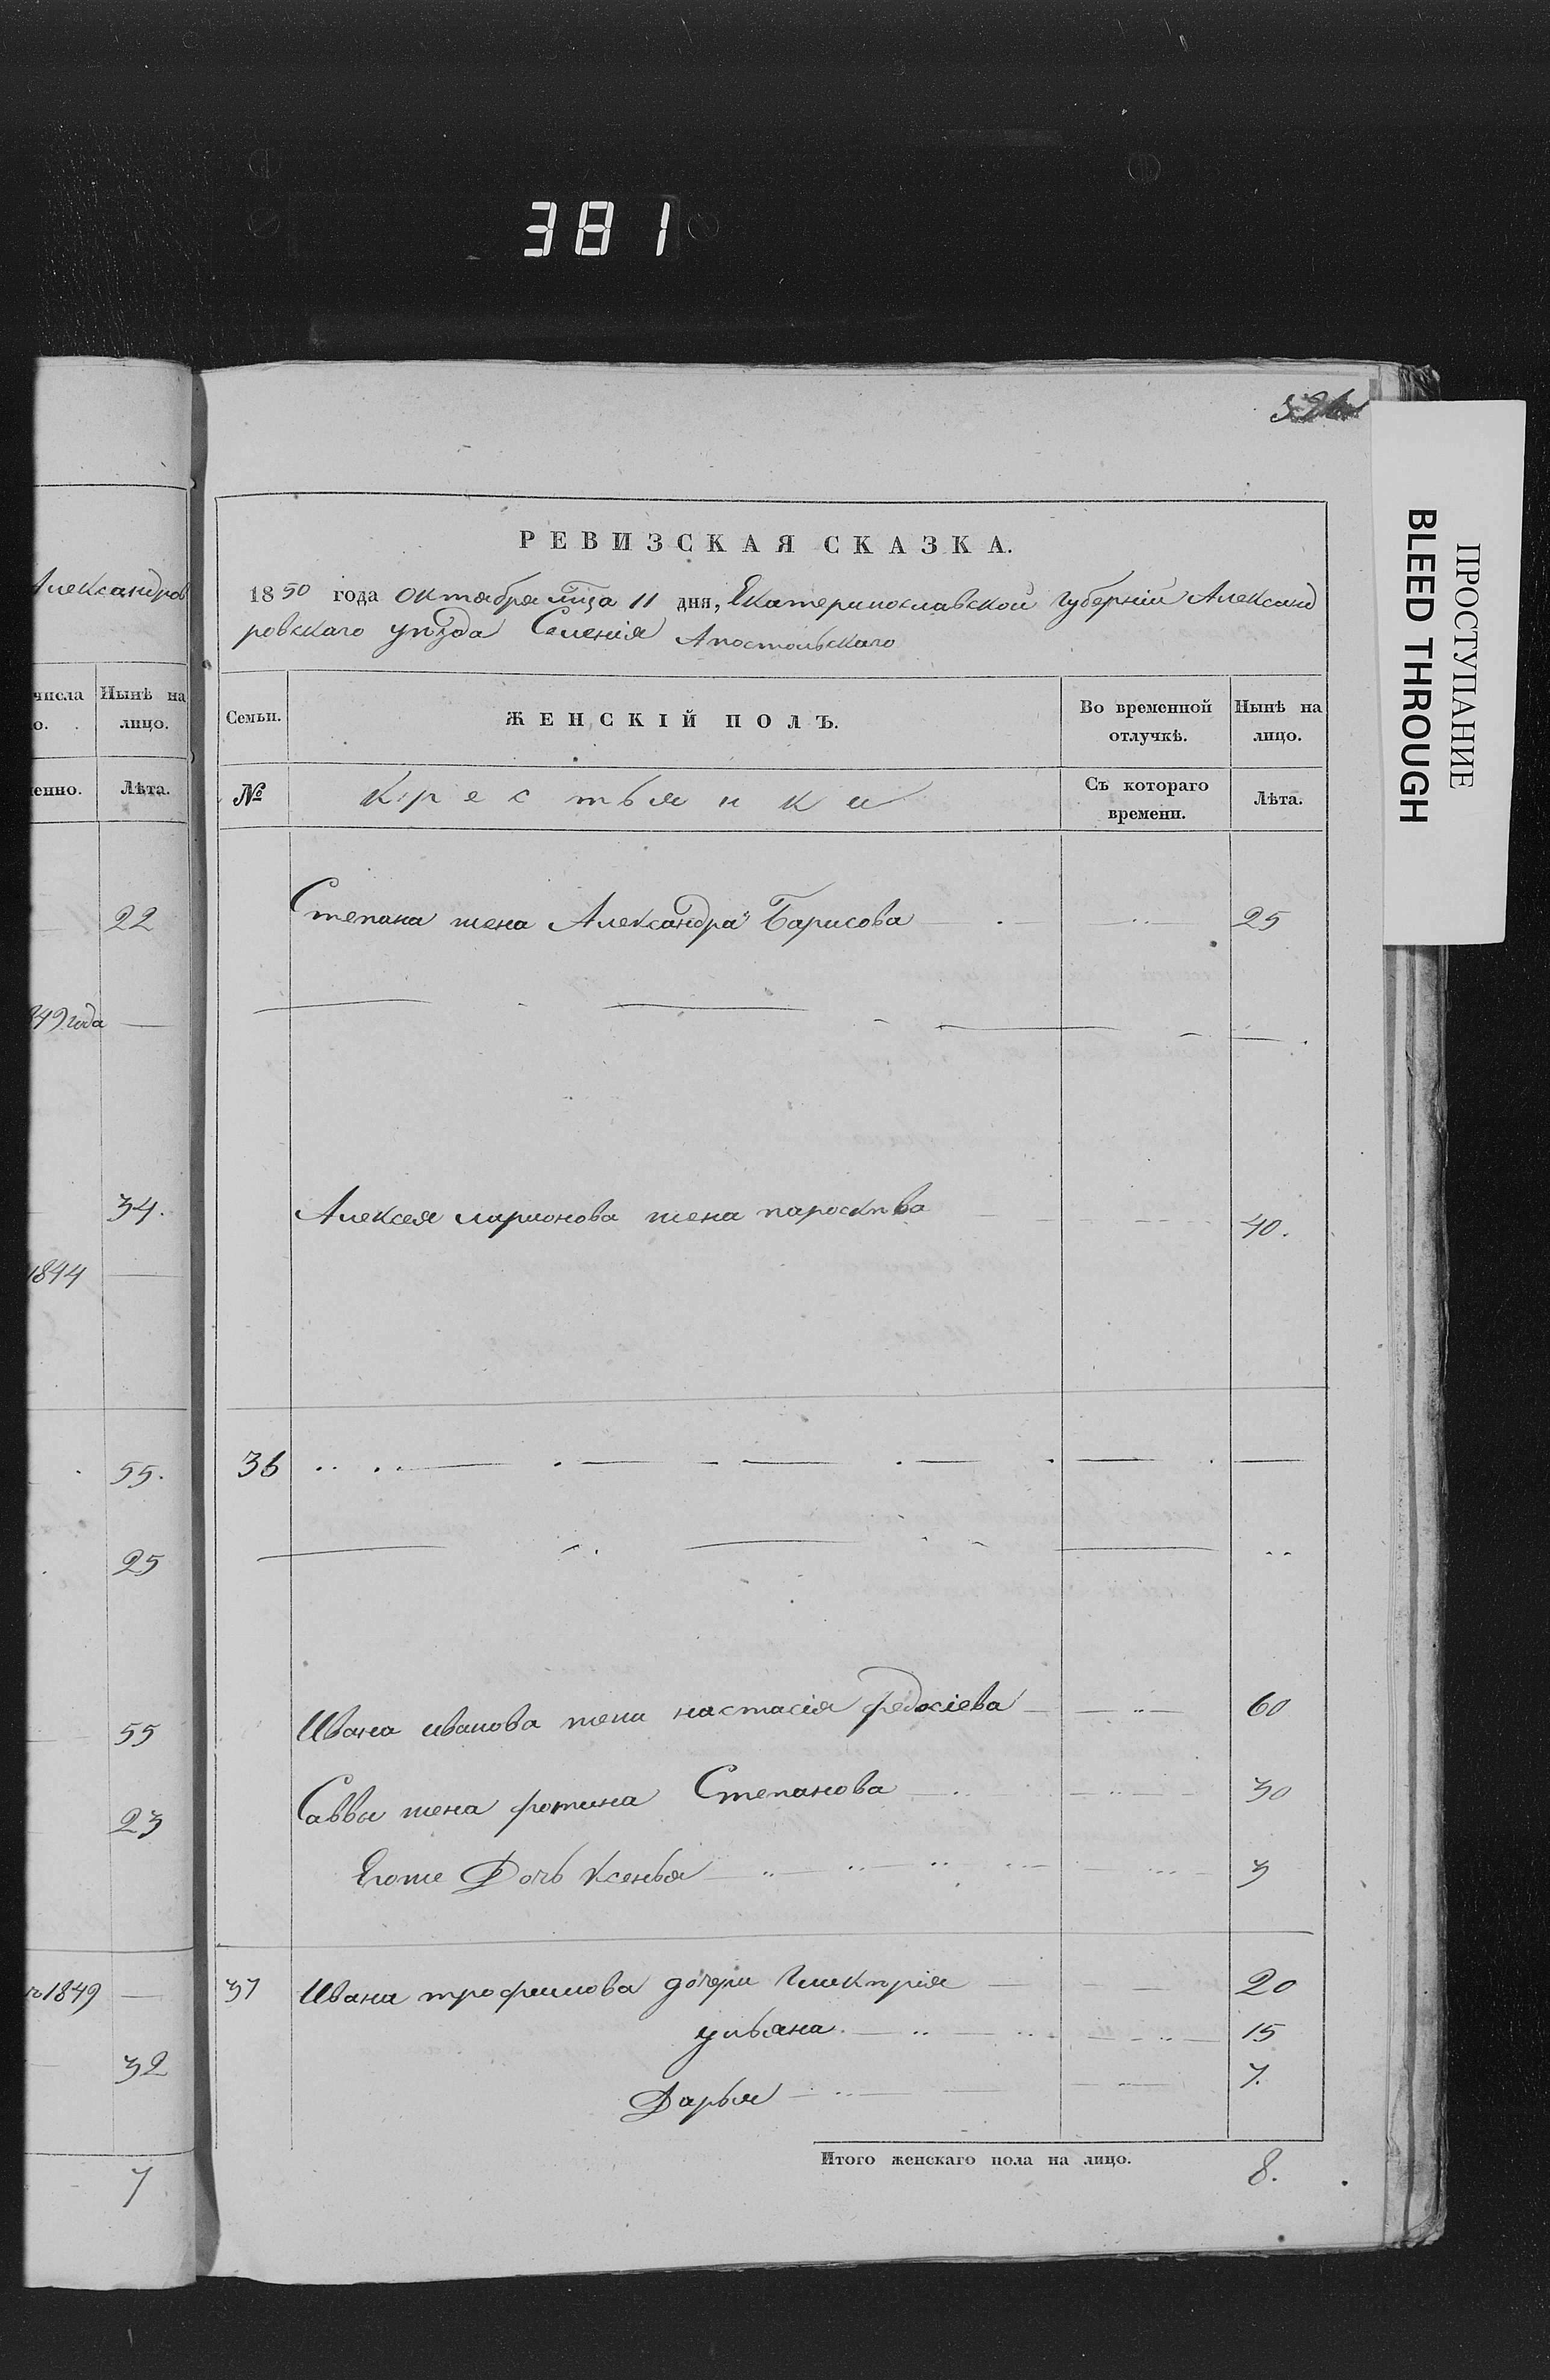 381
РЕВИЗСКАЯ СКАЗКА.
1850 года Октября мца 11 дня, Екатеринославской губерніи Александ
ровскаго уѣзда Селенія Апостольскаго
Семьи.
ЖЕНСКІЙ ПОЛЪ.
Во временной отлучкѣ.
Нынѣ на лицо.
№
Крестьянки
Съ котораго времени.
Лѣта.
Степана жена Александра Барисова 25
Алексея ларионова жена пароскѣва 40.
36
Ивана иванова жена настасія федосіева 60
Саввы жена фотина Степанова 30
Егоже Дочь Ксенья 3
37 Ивана трофимова дочери Гликѣрія 20
ульяна 15
Дарья 7.
Итого женскаго пола на лицо. 8.
Александров
числа
о.
Нынѣ на лицо.
енно.
Лѣта.
22
849 года
34.
1844
55.
25
55
23
1849
32
7
ПРОСТУПАНИЕ
BLEED THROUGH